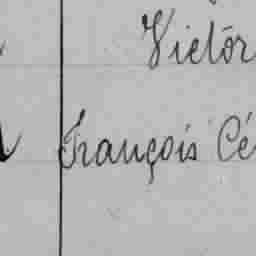 Victor
François Cé